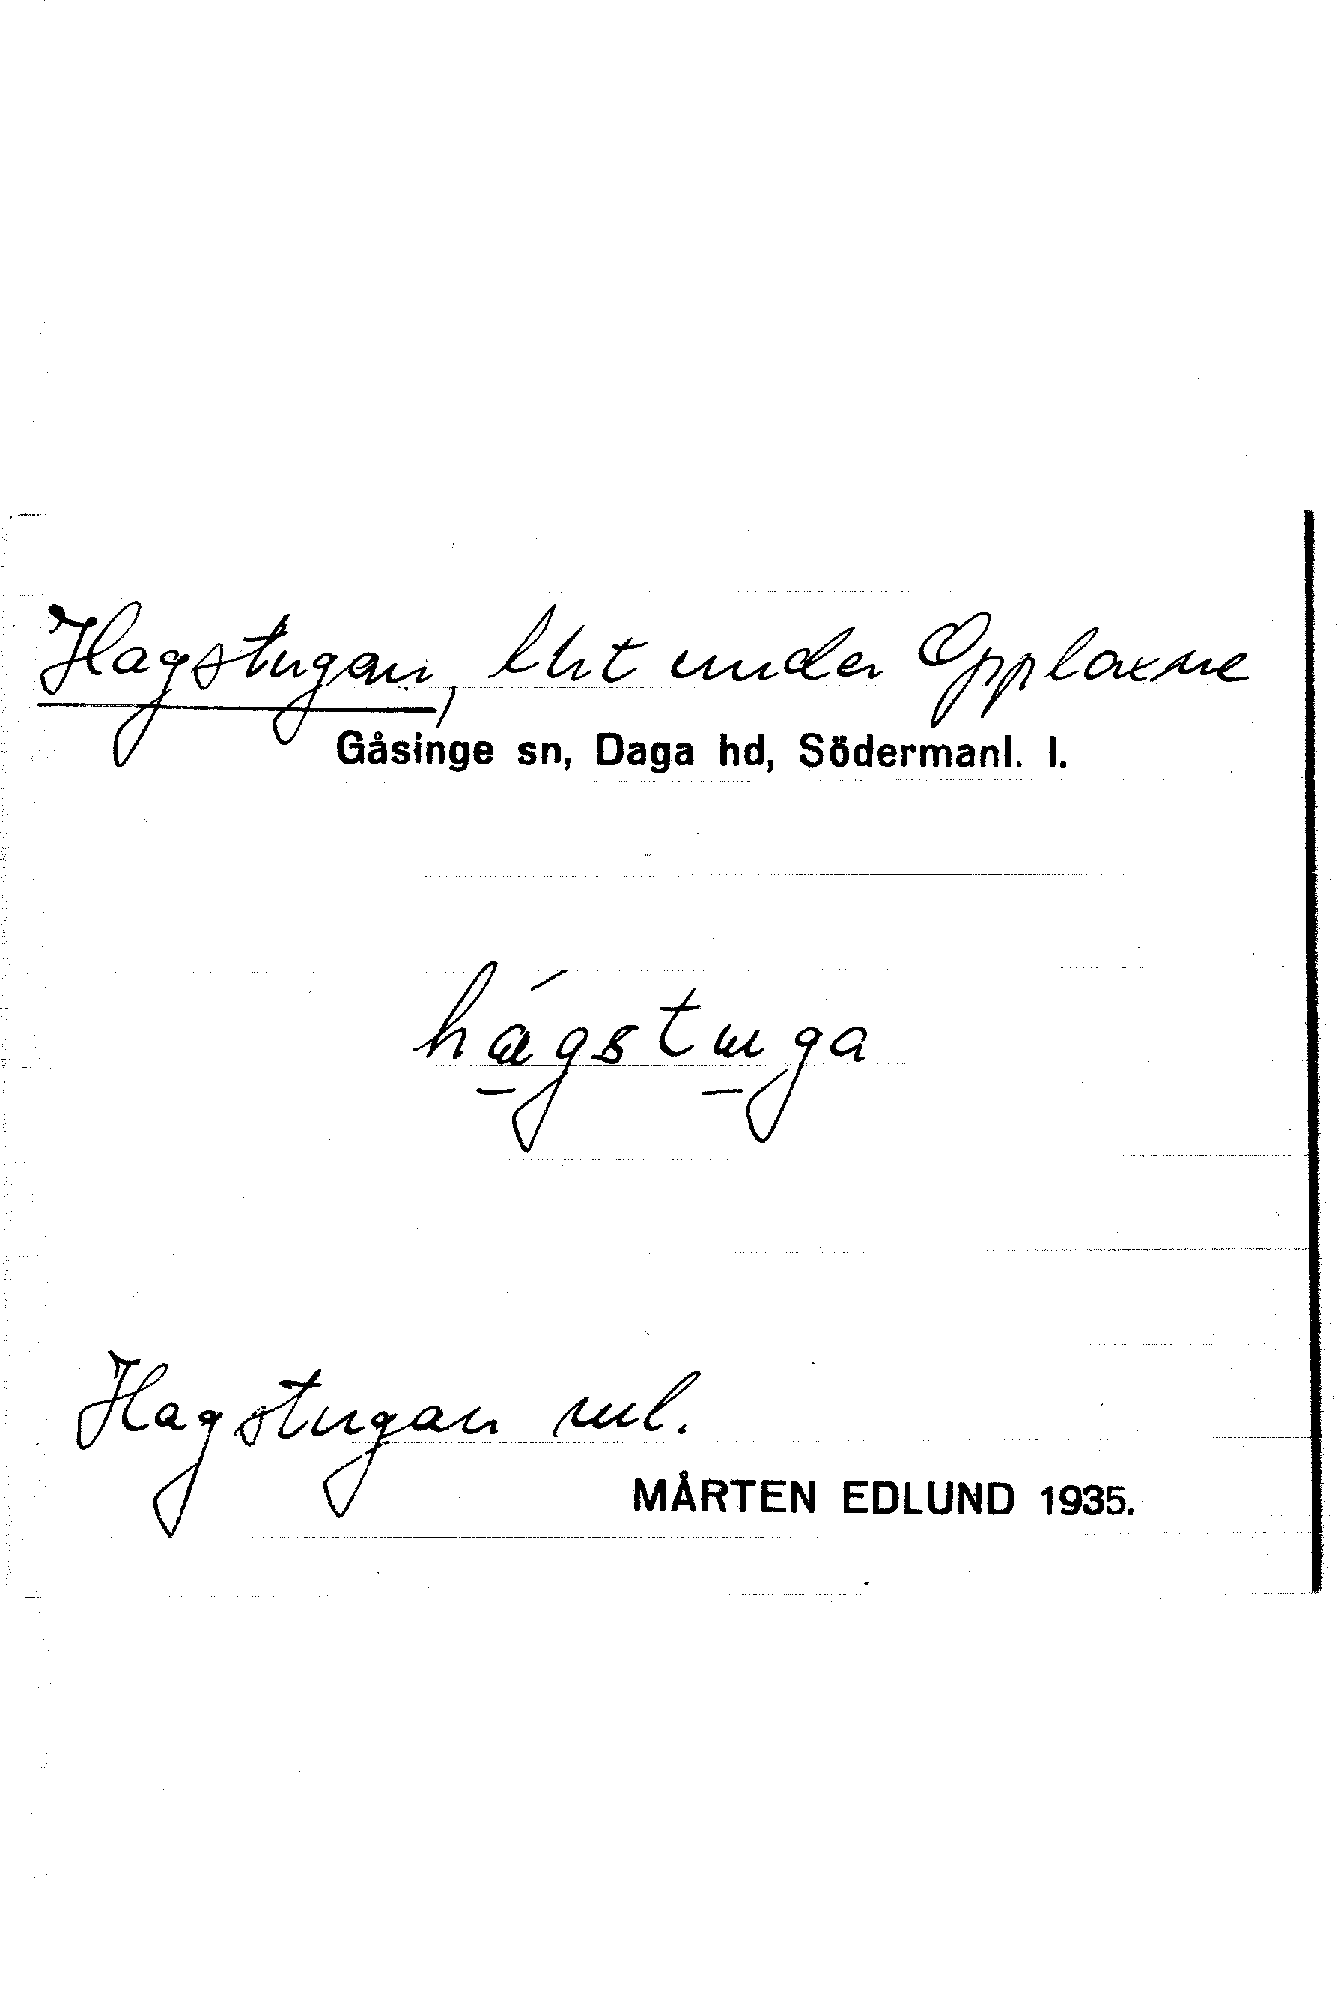 Hagstugan, lht under Opplaxne
Gåsinge sn, Daga hd, Södermanl. l.
hágstuga
Hagstugan uul.
MÅRTEN EDLUND 1935.